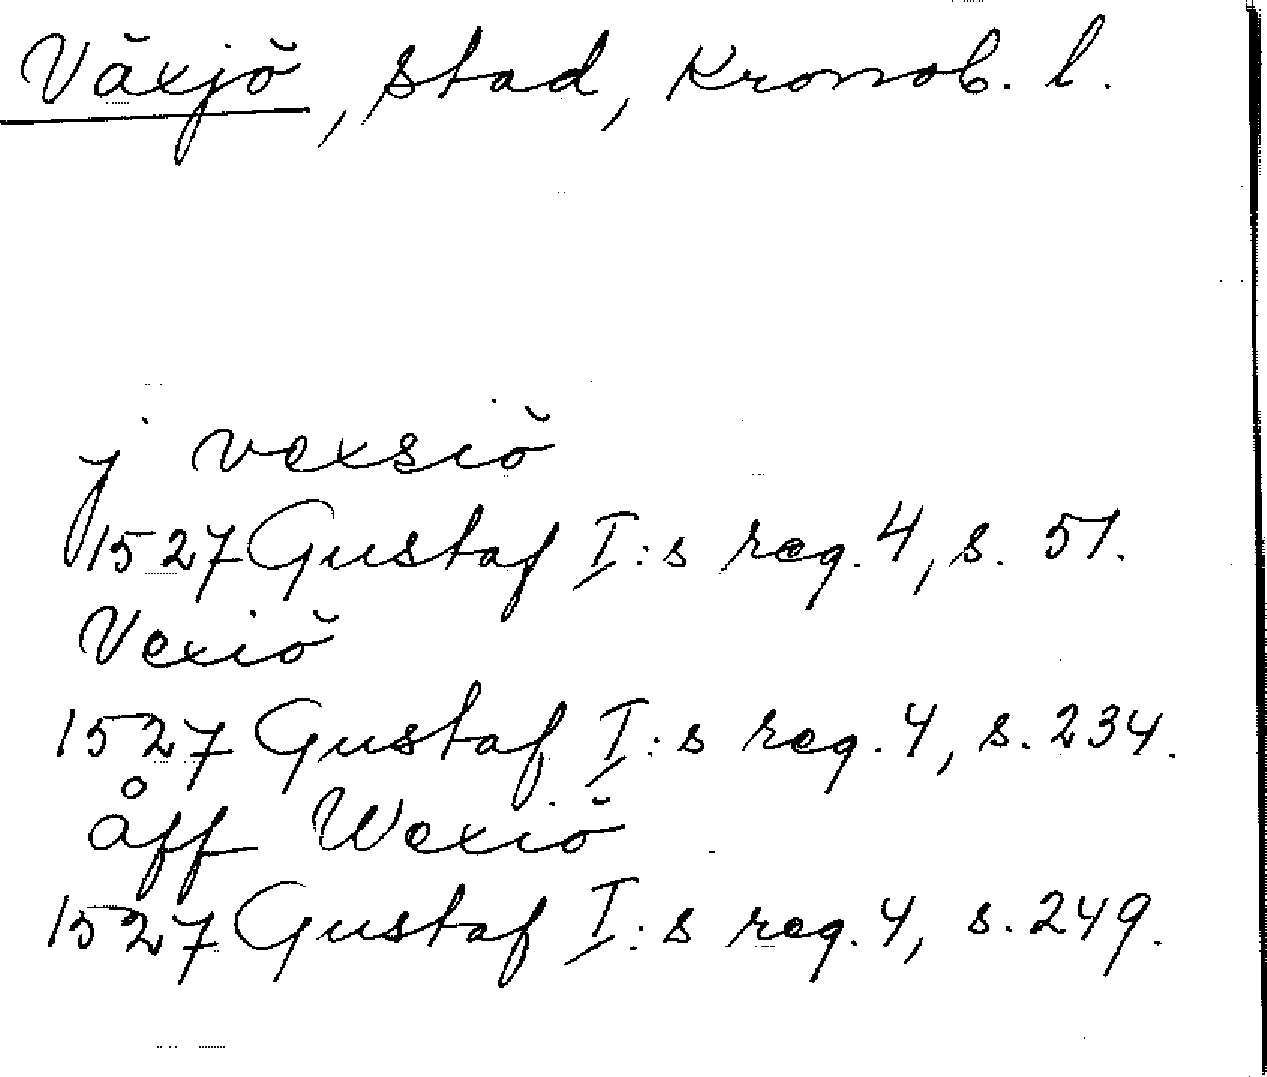 Växjö, stad, Kronob. l.
j vexsiö
1527 Gustaf I:s reg. 4, s. 51.
Vexiö
1527 Gustaf I:s reg. 4, s. 234.
åff Wexiö
1527 Gustaf I:s reg. 4, s. 249.